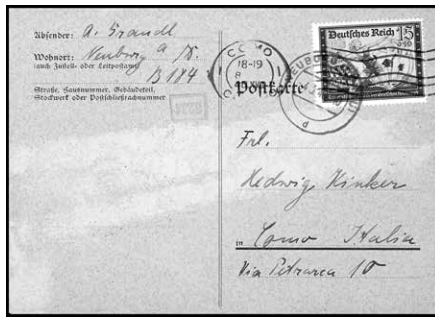 Absender: A. Grandl
Wohnort: Neuburg a/D.
(auch Zustell- oder Leitpostamt)
B 184
Straße, Hausnummer, Gebäudeteil,
Stockwerk oder Postschließfachnummer
COMO
18-19
8
Deutsches Reich
15
Postkarte
d
Frl.
Hedwig Hinker
in Como Italia
Via Petrarca 10